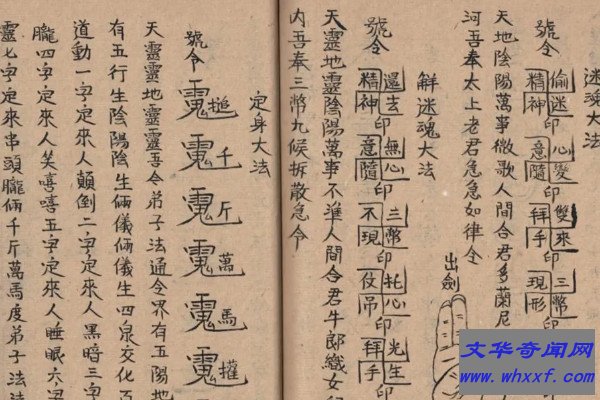 迷魂大法
號令 偷迷精神印 心變意隨印 雙來拜手印 三幣現形印
天地陰陽萬事微歌人間合君多蘭尼
河吾奉太上老君急急如律令
出劍
解迷魂大法
號令 還去精神印 無心意隨印 三幣不現印 托心仗吊印 光生拜手印
天靈地靈陰陽萬事不準人間合君牛郎織女
内吾奉三幣九候拆散急令
定身大法
號令 槌 千 斤 萬 馬
天靈靈地靈靈吾令弟子法通令界有五陽地
有五行生陰陽陰生俩儀俩儀生四泉交化百
道動一字定來人顛倒二字定來人黑暗三字
朧四字定來人笑嘻嘻五字定來人睡眠六字
靈七字定來串頭朧俩千斤萬馬度弟子法
文华奇闻网
www.whxxf.com